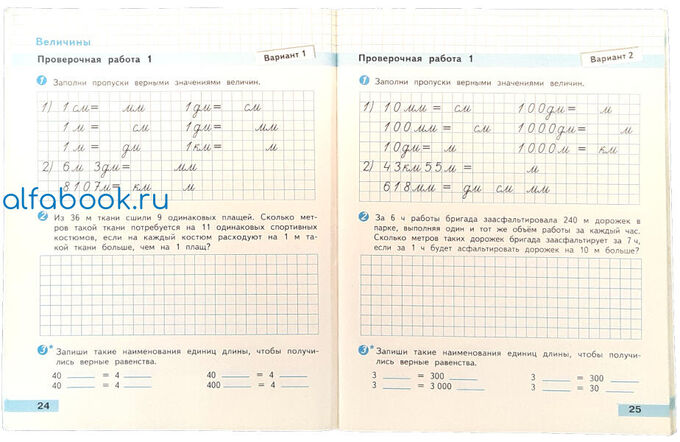 Величины
Проверочная работа 1
Вариант 1
1 Заполни пропуски верными значениями величин.
1) 1 см = мм 1 дм = см
1 м = см 1 дм = мм
1 м = дм 1 км = м
2) 6 м 3 дм = мм
8107 м = км м
alfabook.ru
2 Из 36 м ткани сшили 9 одинаковых плащей. Сколько мет-
ров такой ткани потребуется на 11 одинаковых спортивных
костюмов, если на каждый костюм расходуют на 1 м та-
кой ткани больше, чем на 1 плащ?
3* Запиши такие наименования единиц длины, чтобы получи-
лись верные равенства.
40 ____ = 4 ____ 40 ____ = 4 ____
40 ____ = 400 ____ 400 ____ = 4 ____
24
Проверочная работа 1
Вариант 2
1 Заполни пропуски верными значениями величин.
1) 10 мм = см 100 дм = м
100 мм = см 1000 дм = м
10 дм = м 1000 м = км
2) 43 км 55 м = м
618 мм = дм см мм
2 За 6 ч работы бригада заасфальтировала 240 м дорожек в
парке, выполняя один и тот же объём работы за каждый час.
Сколько метров таких дорожек бригада заасфальтирует за 7 ч,
если за 1 ч будет асфальтировать дорожек на 10 м больше?
3* Запиши такие наименования единиц длины, чтобы получи-
лись верные равенства.
3 ____ = 300 ____ 3 ____ = 300 ____
3 ____ = 3 000 ____ 3 ____ = 30 ____
25